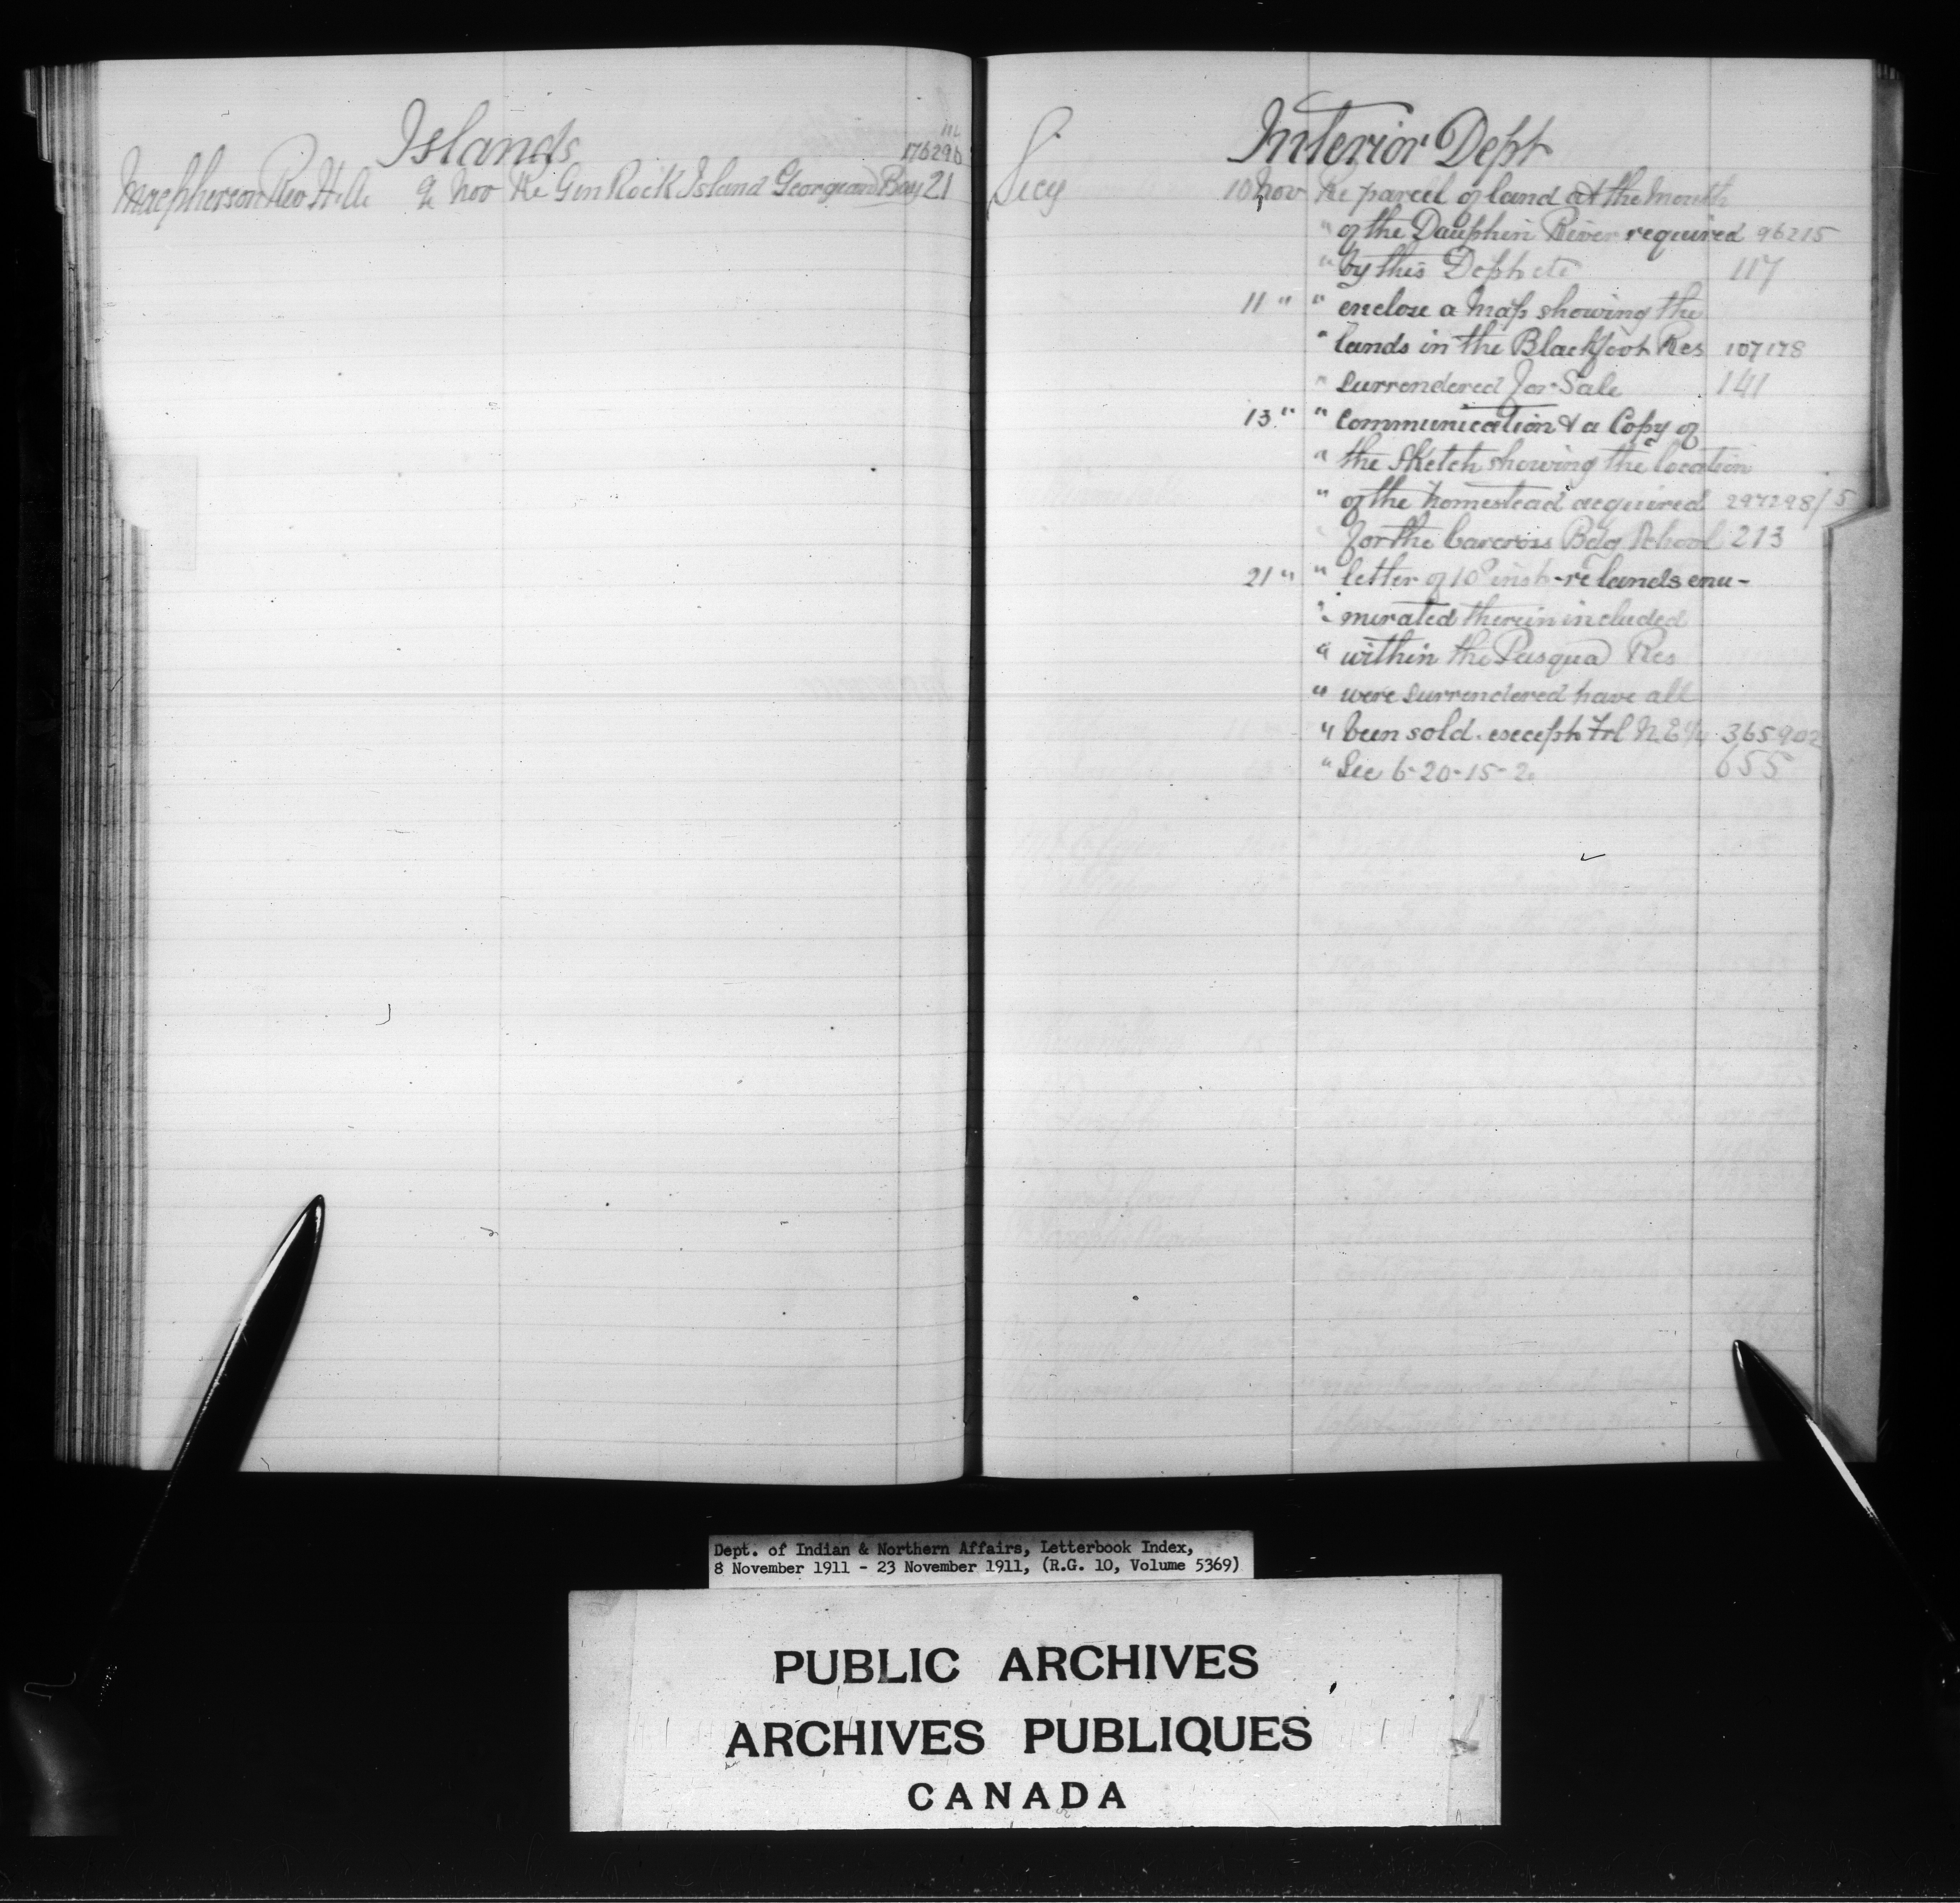 Islands
176290
Macpherson Rev H. A. 9 Nov Re Gin Rock Island Georgian Bay 21
I.
Interior Dept
Secy 10 Nov Re parcel of land at the Mouth
" of the Dauphin River required 96215
" by this Dept etc 117
11 " " enclose a map showing the
" lands in the Blackfoot Res 107178
" surrendered for Sale 141
13 " " Communication & a Copy of
" the Sketch showing the location
" of the homestead acquired 297298/5
" for the Carcross Bdg School 213
21 " " letter of 10 inst - re lands enu-
" merated therein included
" within the Pasqua Res
" were surrendered have all
" been sold. except Frl N.E¼ 365902
" Sec 6-20-15-2 655
Dept. of Indian & Northern Affairs, Letterbook Index,
8 November 1911 - 23 November 1911, (R.G. 10, Volume 5369)
PUBLIC ARCHIVES
ARCHIVES PUBLIQUES
CANADA